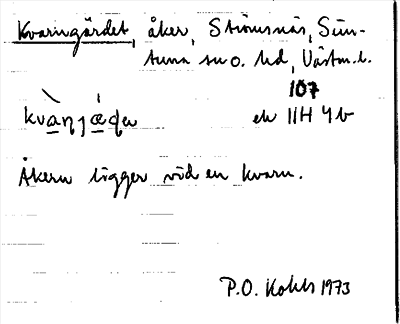 Kvarngärdet, åker, Strömsnäs, Sim-
tuna sn o. hd, Västm.l.
107
ek 11H 4b
Åkern ligger vid en kvarn.
P.O. 1973